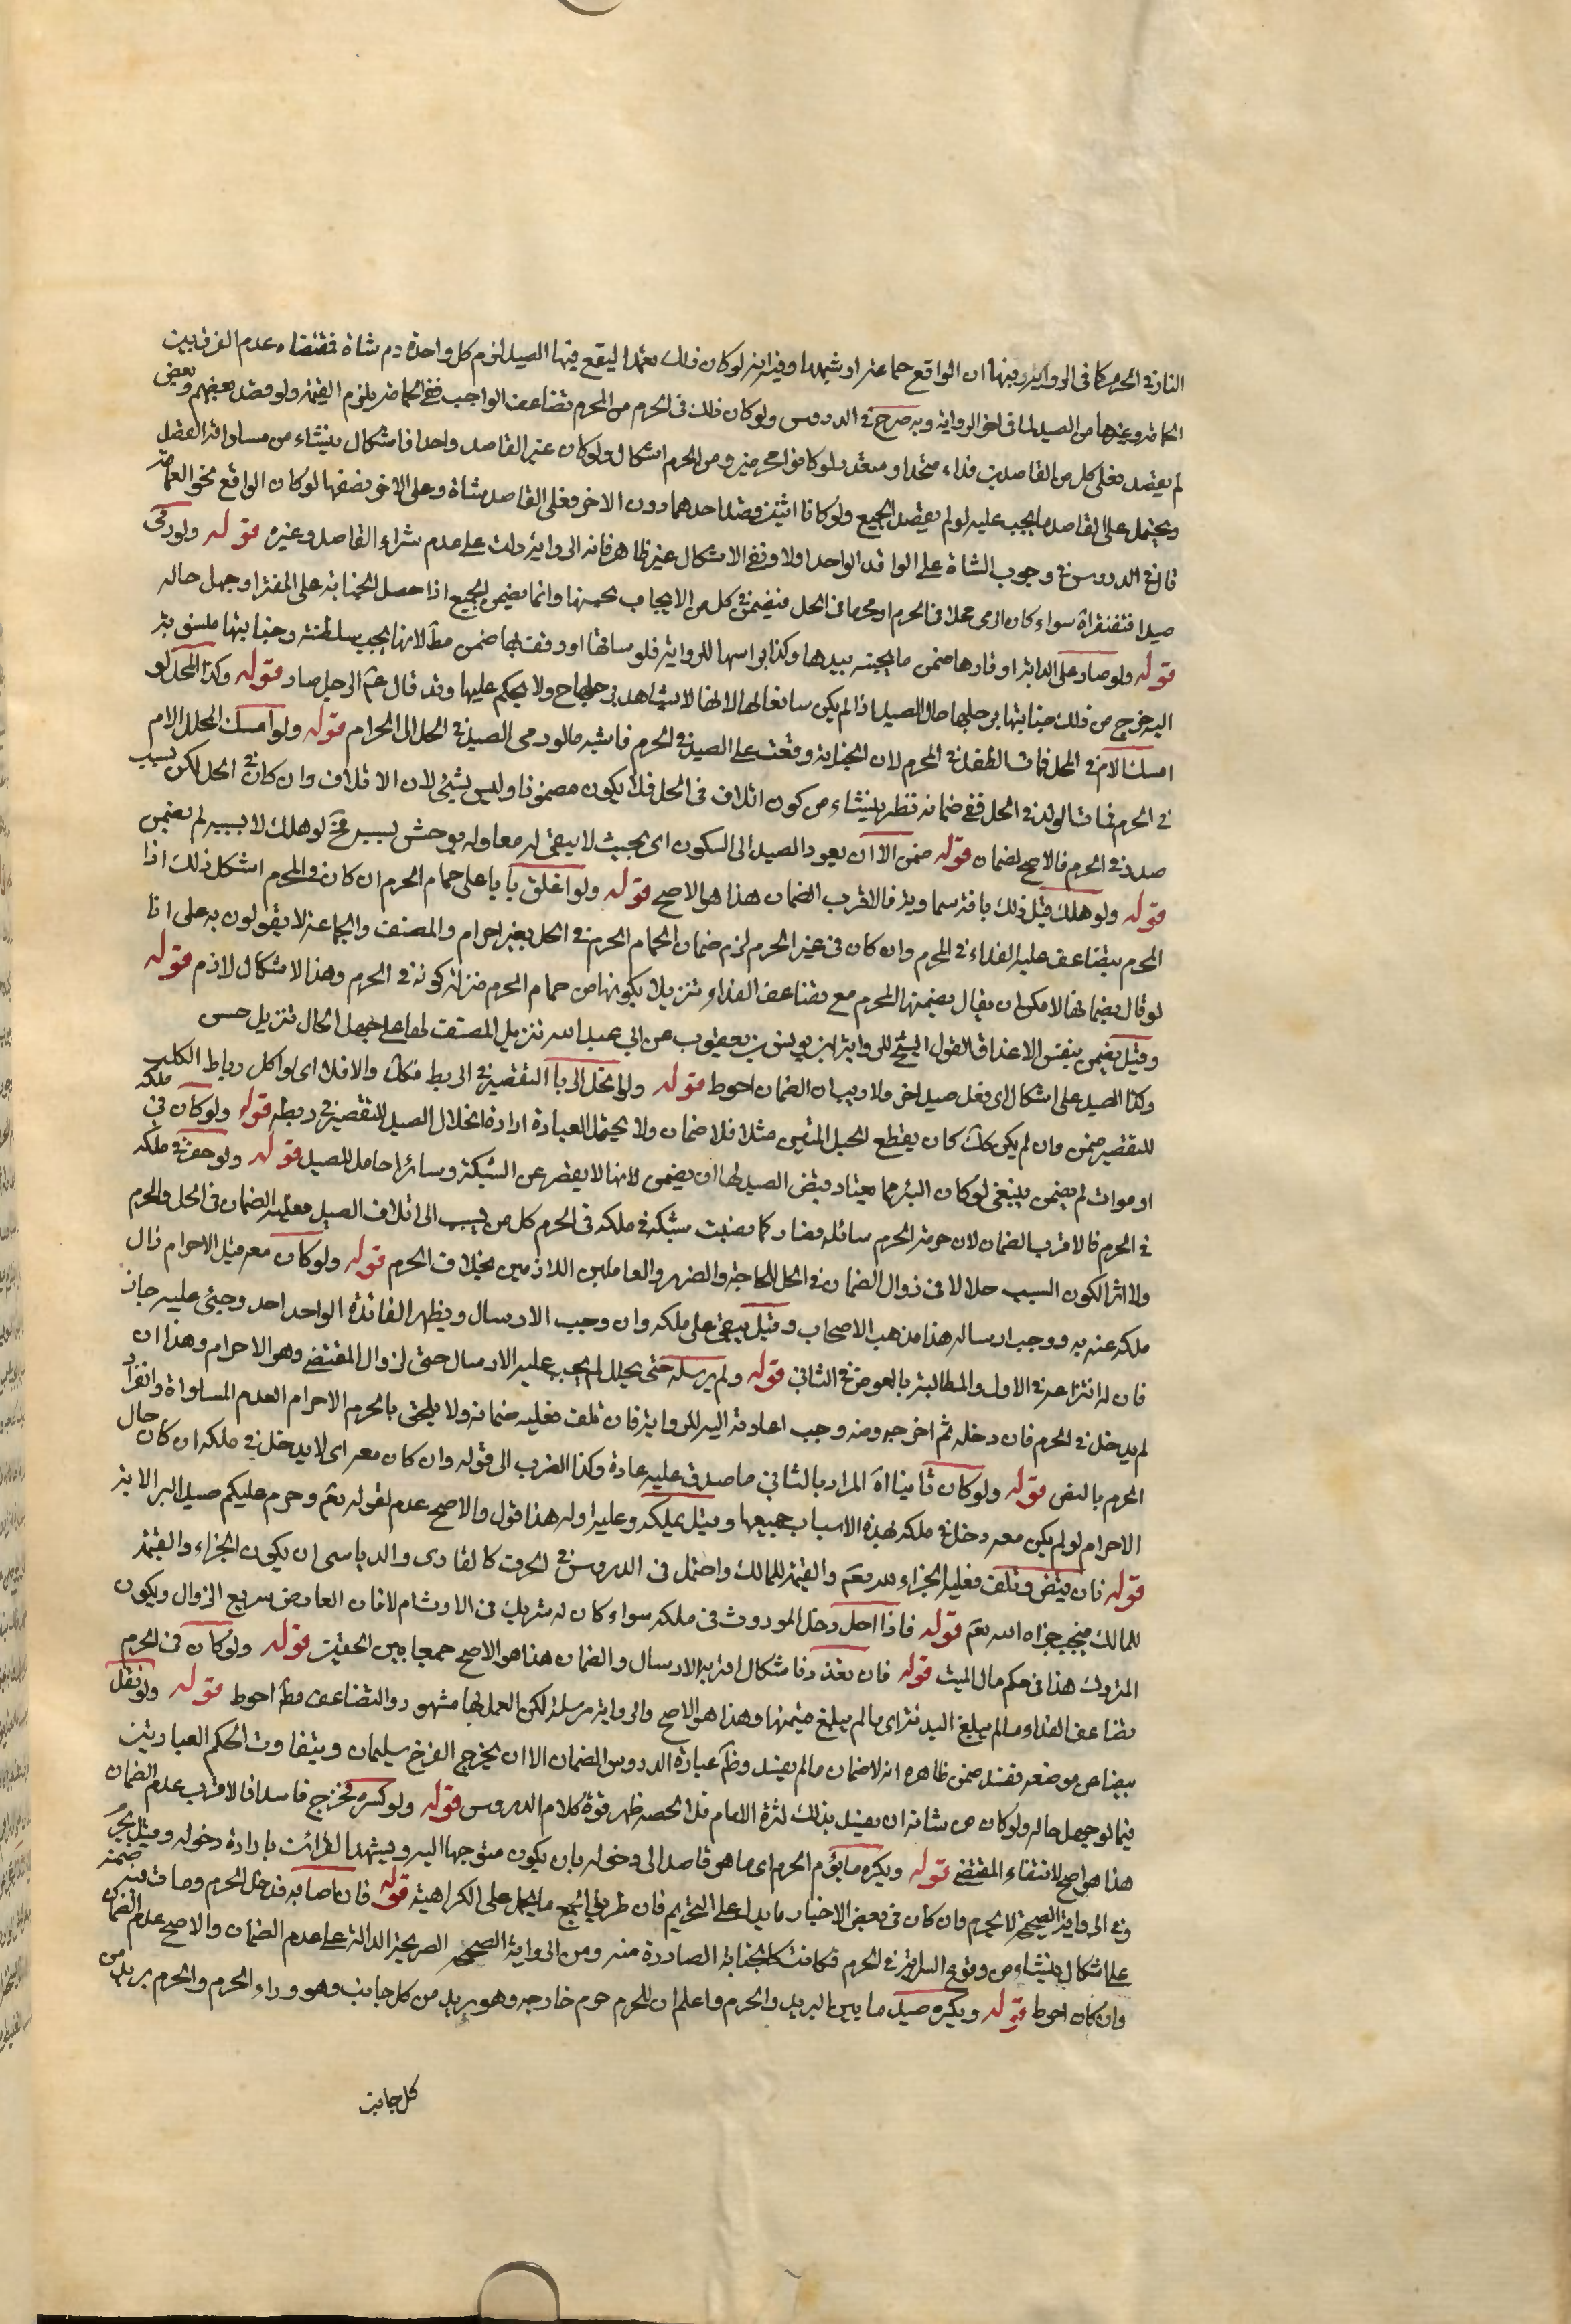 النار في الحرم كما في الرواية وفيها ان الواقع حمامة او شبهها وفيه انه لو كان ذلك تعمدا ليقع فيها الصيد لزم كل واحد دم شاة فمقتضاه عدم الفرق بين
الحمامة وغيرها من الصيد لما في اخر الرواية وبه صرح في الدروس ولو كان ذلك في الحرم من المحرم تضاعف الواجب ففي الحمامة يلزم القيمة ولو قصد بعضهم وبعض
لم يقصد فعلى كل من القاصدين فداء متحدا او متعددا ولو كانوا محرمين ومن الحرم اشكال ولو كان غير القاصد واحدا فاشكال ينشاء من مساواته القصد
ويحتمل على القاصد ما يجب عليه لو لم يقصد الجميع ولو كانا اثنين قصد احدهما دون الاخر فعلى القاصد شاة وعلى الاخر نصفها لو كان الواقع نحو الحمامة
قال في الدروس في وجوب الشاة على الواقد الواحد اولا ونفى الاشكال غير ظاهر فانه الرواية دلت على عدم شراء القاصد وغيره قوله ولو رمى
صيدا فتفنقراة سواء كان الرمى محلا في الحرم او محرما في الحل فيضمن كل من الايجاب بحسبها وانما يضمن الجميع اذا حصل الجناية على المفترا وجهل حاله
قوله ولو صاد على الدابة او قادها ضمن ما يجنيه بيدها وكذا براسها للرواية فلو ساقها او وقف بها ضمن مط لانها يجب سلطنته وجنايتها ملسوبة
اليه خرج من ذلك جنايتها برجليها حال الصيد اذا لم يكن سائقا لها لانها لا يشاهد برجليها ح ولا يحكم عليها وقد قال عم الرجل صاد قوله وكذا المحل لو
امسك الام في الحل فمات الطفل في الحرم لان الجناية وقعت على الصيد في الحرم فاشبه ما لو رمى الصيد في الحل الى الحرام قوله ولو امسك المحل الام
في الحرم فمات الولد في الحل ففي ضمانه نظر ينشاء من كون اتلاف في الحل فلا يكون مضمونا وليس بشئ لان الاتلاف وان كان في الحل لكن بسبب
صدر في الحرم فالاصح لضمان قوله ضمن الا ان يعود الصيد الى السكون اى بحيث لا يبقى له معاوله يوحش بسببه فح لو هلك لا بسببه لم يضمن
قوله ولو هلك قبل ذلك بافة سماوية فالاقرب الضمان هذا هو الاصح قوله ولو اغلق بابا على حمام الحرم ان كان في الحرم اشكل ذلك اذا
المحرم يتضاعف عليه الفداء في الحرم وان كان في غير الحرم لزم ضمان الحمام الحرم في الحل بغير احرام والمصنف والجماعة لا يقولون به على انا
لو قال بضمانها لامكن ان يقال يضمنها المحرم مع تضاعف الفداء تنزيلا لكونها من حمام الحرم منزلة كونه في الحرم وهذا الاشكال لازم قوله
وقيل يضمن بنفس الاغلاق القول الشيخ للرواية ابن يونس بن يعقوب عن ابي عبد الله تنزيل المصنف لها على جهل الحال تنزيل حسن
وكذا الصيد على اشكال اى فعل صيد اخر ولا ريب ان الضمان احوط قوله ولو انحل الرباط التقصيره في الربط فكك والا فلا اى لو اكل رباط الكلب
للتقصير ضمن وان لم يكن كك كان يقطع الحبل المتين مثلا فلا ضمان ولا يحتمل العبارة ارادة انحلال الصيد للتقصير في ربطه قوله ولو كان في ملكه
او موات لم يضمن ينبغي لو كان البئر مما يعتاد قبض الصيد لها ان يضمن لانها لا يقصر عن الشبكة وسائر احامل للصيد قوله ولو حفر في ملكه
في الحرم فالاقرب الضمان لان حرمة الحرم سائله فصار كما نصبت شبكة في ملكه في الحرم كل من يسبب الى اتلاف الصيد فعليه الضمان في الحل والحرم
ولا اثر لكون السبب حلالا في زوال الضمان في الحل للحاجة والضرر والعاملين اللازمين بخلاف الحرم قوله ولو كان معه قبل الاحرام زال
ملكه عنه به ووجب ارساله هذا مذهب الاصحاب وقيل يبقى على ملكه وان وجب الارسال ويظهر الفائدة الواحد احد وجنى عليه جان
فان له انتزاعه في الاول والمطالبة بالعوض في الثاني قوله ولم يرسله حتى يحلل لم يجب عليه الارسال حتى لزوال المقتضى وهو الاحرام وهذا ان
لم يدخل في الحرم فان دخله ثم اخرجه ومنه وجب اعادته اليه للرواية فان تلف فعليه ضمانه ولا يلحق بالحرم الاحرام لعدم المساواة وانفراد
الحرم بالنص قوله ولو كان ثانيا اة المراد بالثاني ما صدق عليه عادة وكذا الضرب الى قوله وان كان معه اى لا يدخل في ملكه ان كان حال
الاحرام لو لم يكن معه دخل في ملكه لهذه الاسباب جميعها وقيل يملكه وعليه ارساله هذا قول والاصح عدم لقوله تعم وحرم عليكم صيد البر الاية
قوله فان قبض وتلف فعليه الجزاء لله تعم والقيمة للمالك واحتمل في الدروس في الحرف كالقادى والدباسى ان يكون الجزاء والقيمة
للمالك فيجبر جزاه الله تعم قوله فاذا احل دخل الموروث في ملكه سواء كان له شريك في الاوث ام لا فان العارض سريع الزوال ويكون
المتروك هذا في حكم مال الميت قوله فان تعذر دفا شكال اقربه الارسال والضمان هذا هو الاصح جمعا بين الحقين قوله ولو كان في الحرم
تضاعف الفداء مالم يبلغ البدنة اى مالم يبلغ قيمتها وهذا هو الاصح والرواية مرسلة لكن العمل بها مشهور والتضاعف مط احوط قوله ولو نقل
بيضا عن موضعه ففسد ضمن ظاهره انه لا ضمان ما لم يفسد وظ عبارة الدروس الضمان الا ان يخرج الفرخ سليما ويتفاوت الحكم العبارتين
فيما لو جهل حاله ولو كان من شانه ان يفسد بذلك لثرة الامام فلا الحصه ظهر قوة كلام الدروس قوله ولو كسره فخرج فاسدا فالاقرب عدم الضمان
هذا هو اصح لانتفاء المقتضى قوله ويكره ما يؤم الحرم اى ما هو قاصد الى دخوله بان يكون متوجها اليه ويشهد القرائن بارادة دخوله وقيل يحرم
وفي الرواية الصحيحة لا يحرم وان كان في بعض الاخبار ما يدل على التحريم فان طريق الجمع ما يحمل على الكراهية قوله فان اصابه فدخل الحرم ومات فيه ضمنه
على اشكال ينشاء من وقوع السراية في الحرم فكانت كالجناية الصادرة منه ومن الرواية الصحيحة الصريحة الدالة على عدم الضمان والاصح عدم الضمان
وان كان احوط قوله ويكره صيد ما بين البريد والحرم واعلم ان للحرم حرم خارجه وهو بريد من كل جانب وهو وراء الحرم والحرم بريد من
كل جانب